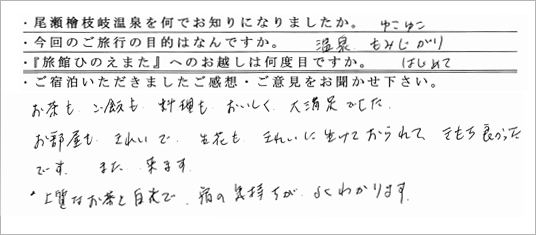 ・尾瀬檜枝岐温泉を何でお知りになりましたか。 ゆこゆこ
・今回のご旅行の目的はなんですか。 温泉 もみじがり
・『旅館ひのえまた』へのお越しは何度目ですか。 はじめて
・ご宿泊いただきましたご感想・ご意見をお聞かせ下さい。
お茶も、ご飯も、料理も、おいしく、大満足でした。
お部屋も、きれいで、生花も、きれいに生けておられて、きもち良かった
です。また、来ます。
上質なお茶と で、宿の気持ちが、よくわかります。